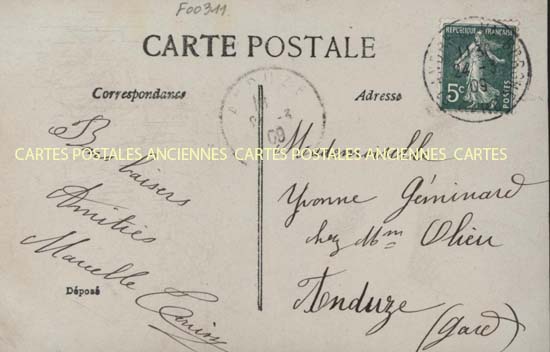 F00311
CARTE POSTALE
Correspondance
Adresse
REPUBLIQUE FRANÇAISE
5c
ANDUZE
09
Bons baisers
Amitiés
Marcelle
Mademoiselle
Yvonne Géminard
chez Mme Olieu
Anduze
(Gard)
CARTES POSTALES ANCIENNES CARTES POSTALES ANCIENNES CARTES
Déposé